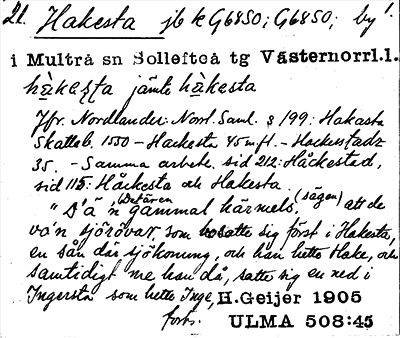 21. Hakesta jb k G6850; G6850; by!
i Multrå sn Sollefteå tg Västernorrl.l.
hàkesta jämte hàkesta
Jfr. Nordlander: Norrl. Saml. s 199: Hakasta
Skatteb. 1550 – Hackesta 45 m fl. – Hackesstadz
35. – Samma arbete sid 212: Håckestad,
sid 115: Håckesta och Hakesta.
(Det är en) (sägen)
"D'ä 'n gammal härmels, att de
va'n sjörövar som satte sig först i Hakesta,
en sån där sjökonung, och han hette Hake, och
samtidigt me han då, satte sig en ned i
Ingersta som hette Inge, H.Geijer 1905
forts. ULMA 508:45